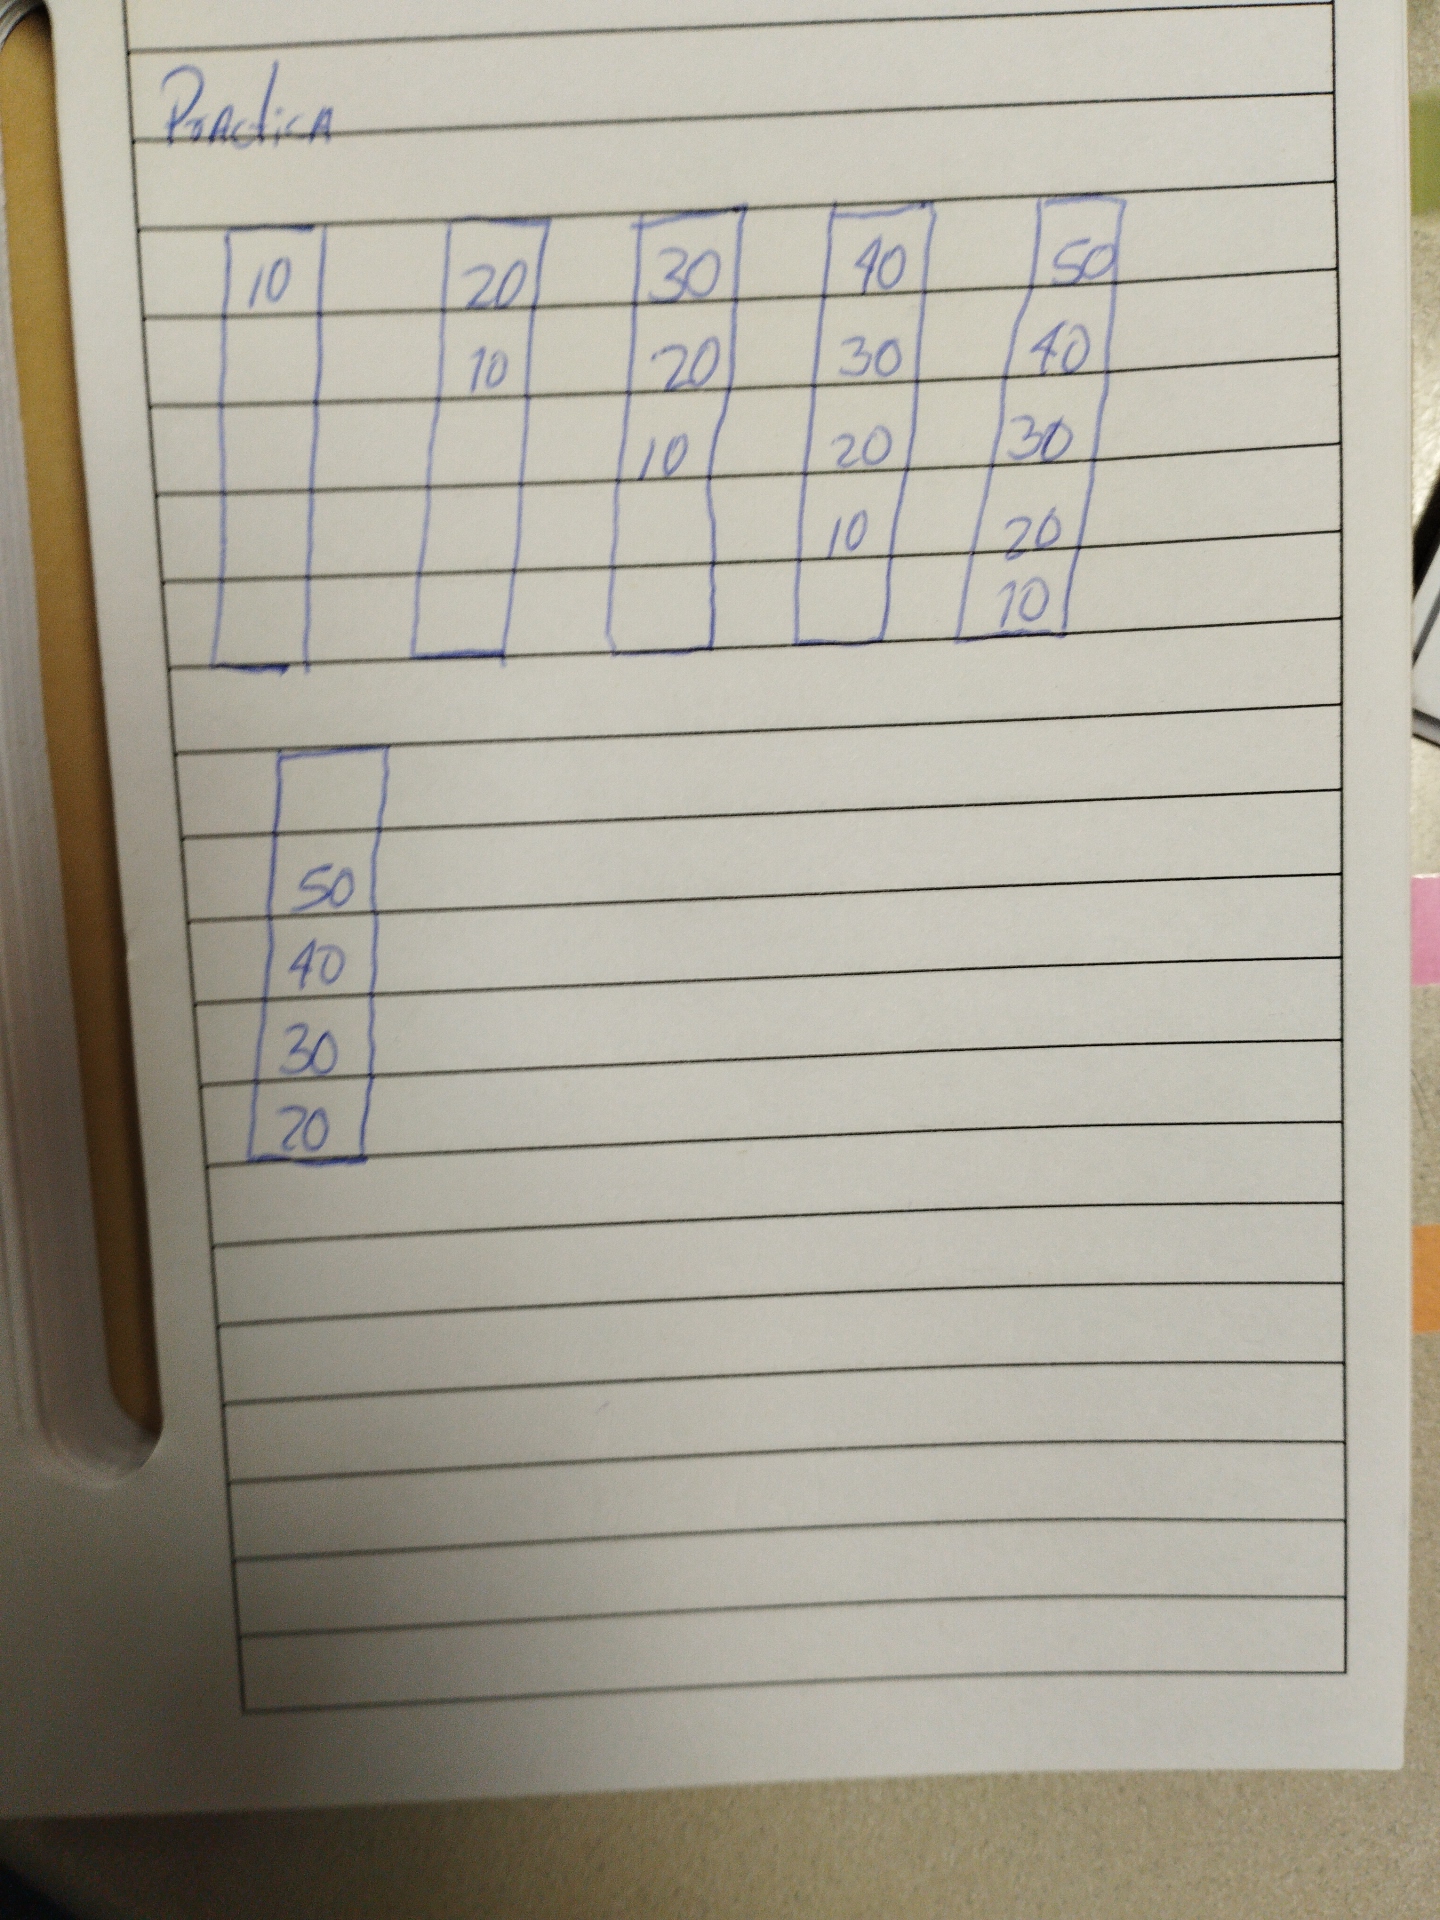 Practica
10 20 30 40 50
10 20 30 40
10 20 30
10 20
10
50
40
30
20